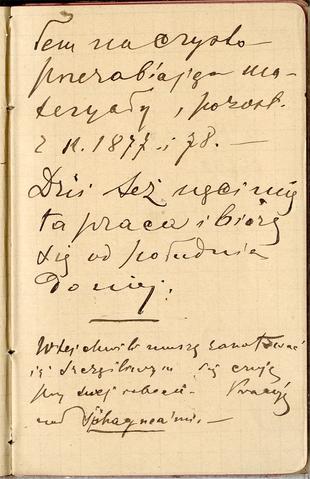 Tem na czysto
przerabiając ma-
teryały, pozost.
z r. 1877 i 78. —
Dziś też nęci mię
ta praca i biorę
się od południa
do niej.
W tej chwili muszę zanotować
iż szczęśliwym się czuję
przy swej robocie. Pracuję
nad Sphagneami. —